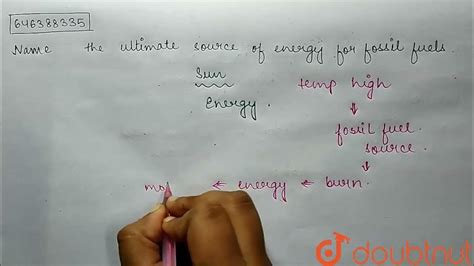 646388335
Name the ultimate source of energy for fossil fuels.
Sun
Energy.
temp high
fossil fuel
source.
mo ← energy ← burn.
doubtnut